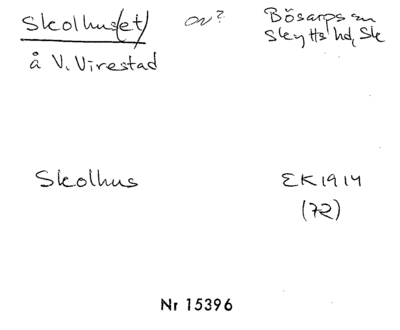 Skolhus(et) on? Bösarps sn
Skytts hd, Sk
å V. Virestad
Skolhus EK1914
(72)
Nr 15396